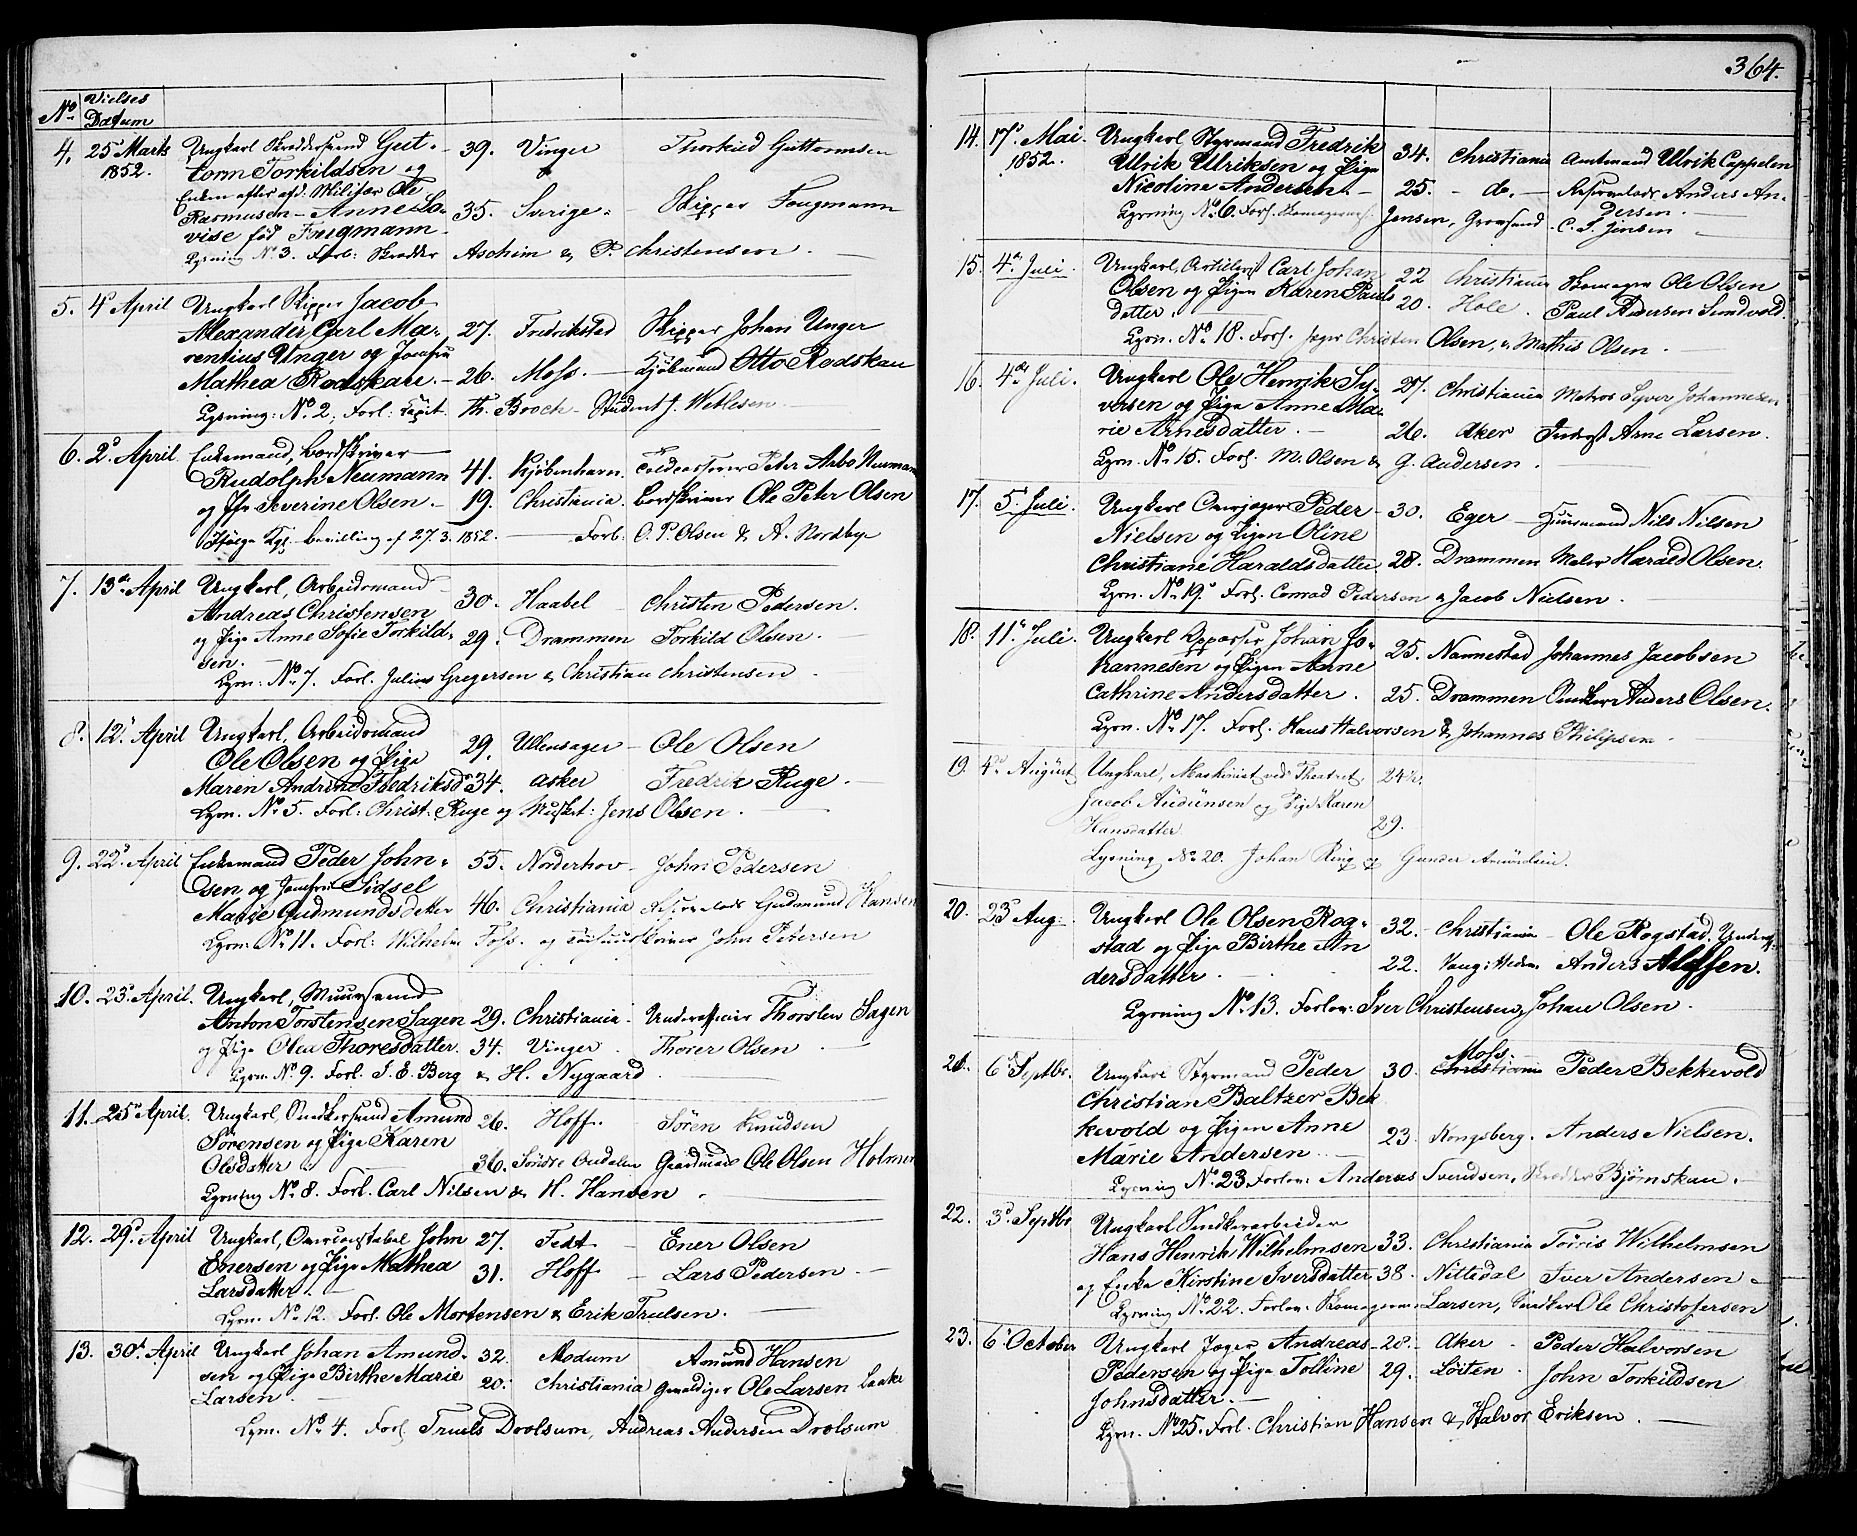 No Vielses
Datum
4. 25 Marts 1852. Ungkarl Skreddersvend Gut-
torm Torkildsen og 39. Vinger Thorkild Guttormsen
Enken efter afd. Militær Ole
Rasmusen - Anne Lo- 35. Sverige. Skipper Fougmann
vise fød Fougmann
Lysning No 3. Forl: Skredder Aschim & P. Christensen.
5. 4 April Ungkarl Skipper Jacob
Alexander Carl Ma- 27. Fredrikstad Skipper Johan Unger
rentius Unger og Jomfru
Mathea Rodskau. 26. Moss. Kjøbmand Otto Rodskau
Lysning: No 2, Forl: Capit. Th. Broch - Student J. Wetlesen
6. 2 April Enkemand, Contorskriver
Rudolph Neumann 41. Kjøbenhavn. Peter Arbo Neumann
og Jfr Severine Olsen. 19. Christiania. Ole Peter Olsen
Ifølge Kgl. bevilling af 27.3.1852. Forl: O. P. Olsen & A. Nordbye
7. 13 April Ungkarl, Arbeidsmand
Andreas Christensen 30. Haabel Christen Pedersen.
og Pige Anne Sofie Torkild- 29. Drammen Torkild Olsen.
sen.
Lysn: No 7. Forl. Julius Gregersen & Christian Christensen.
8. 12 April Ungkarl, Arbeidsmand
Ole Olsen og Pige 29. Ullensager Ole Olsen
Maren Andrine Fredriksd 34. Asker Fredrik Ruge.
Lysn. No 5. Forl: Christ: Ruge og Musket: Jens Olsen.
9. 22 April Enkemand Peder John- 55. Norderhov John Pedersen
sen og Jomfru Sidsel
Marie Gudmundsdatter 46. Christiania Gudmund Hansen
Lysn: No 11. Forl: Wilhelm Foss. og John Petersen
10. 23 April. Ungkarl, Muursvend
Anton Torstensen Sagen 29. Christiania. Underofficier Thorsten Sagen
og Pige Olea Thoresdatter. 34. Vinger. Thorer Olsen
Lysn. No 9. Forl. J. E. Berg & H. Nygaard
11. 25 April Ungkarl, Snedkersvend Amund 26. Hoff. Søren Knudsen
Sørensen og Pige Karen
Olesdatter 36. Søndre Aurdalen Gaardmand Ole Olsen Holmen
Lysning No 8. Forl. Carl Nilsen & H. Hansen
12. 29 April Ungkarl, Overconstabel John 27. Fedt Ener Olsen
Enersen og Pige Mathea 31. Hoff Lars Pedersen.
Larsdatter.
Lysn. No 12. Forl. Ole Mortensen & Erik Truelsen.
13. 30 April Ungkarl Johan Amund- 32. Modum Amund Hansen
sen og Pige Birthe Marie 20. Christiania Gevaldiger Ole Larsen Laake
Larsen.
Lysn. No 4. Forl Truels Drolsum, Andreas Andersen Drolsum
364.
14. 17 Mai 1852. Ungkarl Styrmand Fredrik
Ulrik Ulriksen og Pige 34. Christiania Amtmand Ulrik Cappelen
Nicoline Andersen. 25. - do. - Anders An-
dersen.
Lysning No 6. Forl. Jensen, C. F. Jensen
15. 4 Juli. Ungkarl, Artillerist Carl Johan 22 Christiania Skomager Ole Olsen
Olsen og Pigen Karen Pauls 20. Hole. Paul Andersen Sundvold.
datter.
Lysn. No 18. Forl. Jæger Christen Olsen, & Mathis Olsen.
16. 4 Juli. Ungkarl Ole Henrik Sy- 27. Christiania Matros Syver Johannesen
versen og Pige Anne Ma-
rie Arnesdatter. 26. Aker Inderst Arne Larsen.
Lysn. No 15. Forl. M. Olsen & G. Andersen.
17. 5 Juli. Ungkarl Overjæger Peder 30. Eger Huusmand Nils Nilsen
Nielsen og Pigen Oline
Christiane Haraldsdatter. 28. Drammen Maler Harald Olsen.
Lysn. No 19. Forl. Conrad Pedersen & Jacob Nielsen.
18. 11 Juli. Ungkarl Oppasser Johan Jo- 25. Nannestad Johannes Jacobsen
hannesen og Pigen Anne
Cathrine Andersdatter. 25. Drammen Snedker Anders Olsen.
Lysn. No 17. Forl. Hans Halvorsen & Johannes Philipsen
19. 4 August Ungkarl, Maskinist ved Theatret, 24½.
Jacob Audunsen og Pige Karen
Hansdatter 29.
Lysning No 20. Johan Ring og Gunder Amundsen.
20. 23 Aug. Ungkarl Ole Olsen Rog- 32. Christiania Ole Rogstad,
stad og Pige Birthe An 22. Vang: Hedm. Anders Alfsen.
dersdatter.
Lysning No 13. Forlov: Iver Christensen, Johan Olsen.
21. 6 Septbr. Ungkarl Styrmand Peder 30. Moss. Christiania Peder Bekkevold
Christian Baltzer Bek
kevold og Pigen Anne 23. Kongsberg. Anders Nielsen.
Marie Andersen.
Lysning No 23. Forlov: Andreas Svendsen, Skredder Bjørnskau.
22. 3 Septbr Ungkarl Snedkerarbeider
Hans Henrik Wilhelmsen 33. Christiania Tøiris Wilhelmsen
og Enke Kirstine Iversdatter 38. Nittedal Iver Andersen
Lysning No 22. Forlov: Skomagerm. Larsen, Snedker Ole Christofersen
23. 6 October Ungkarl Jæger Andreas 28. Aker Peder Halvorsen
Pedersen og Pige Tolline 29. Løiten. John Torkildsen
Johnsdatter.
Lysn. No 25. Forl. Christian Hansen & Halvor Eriksen.